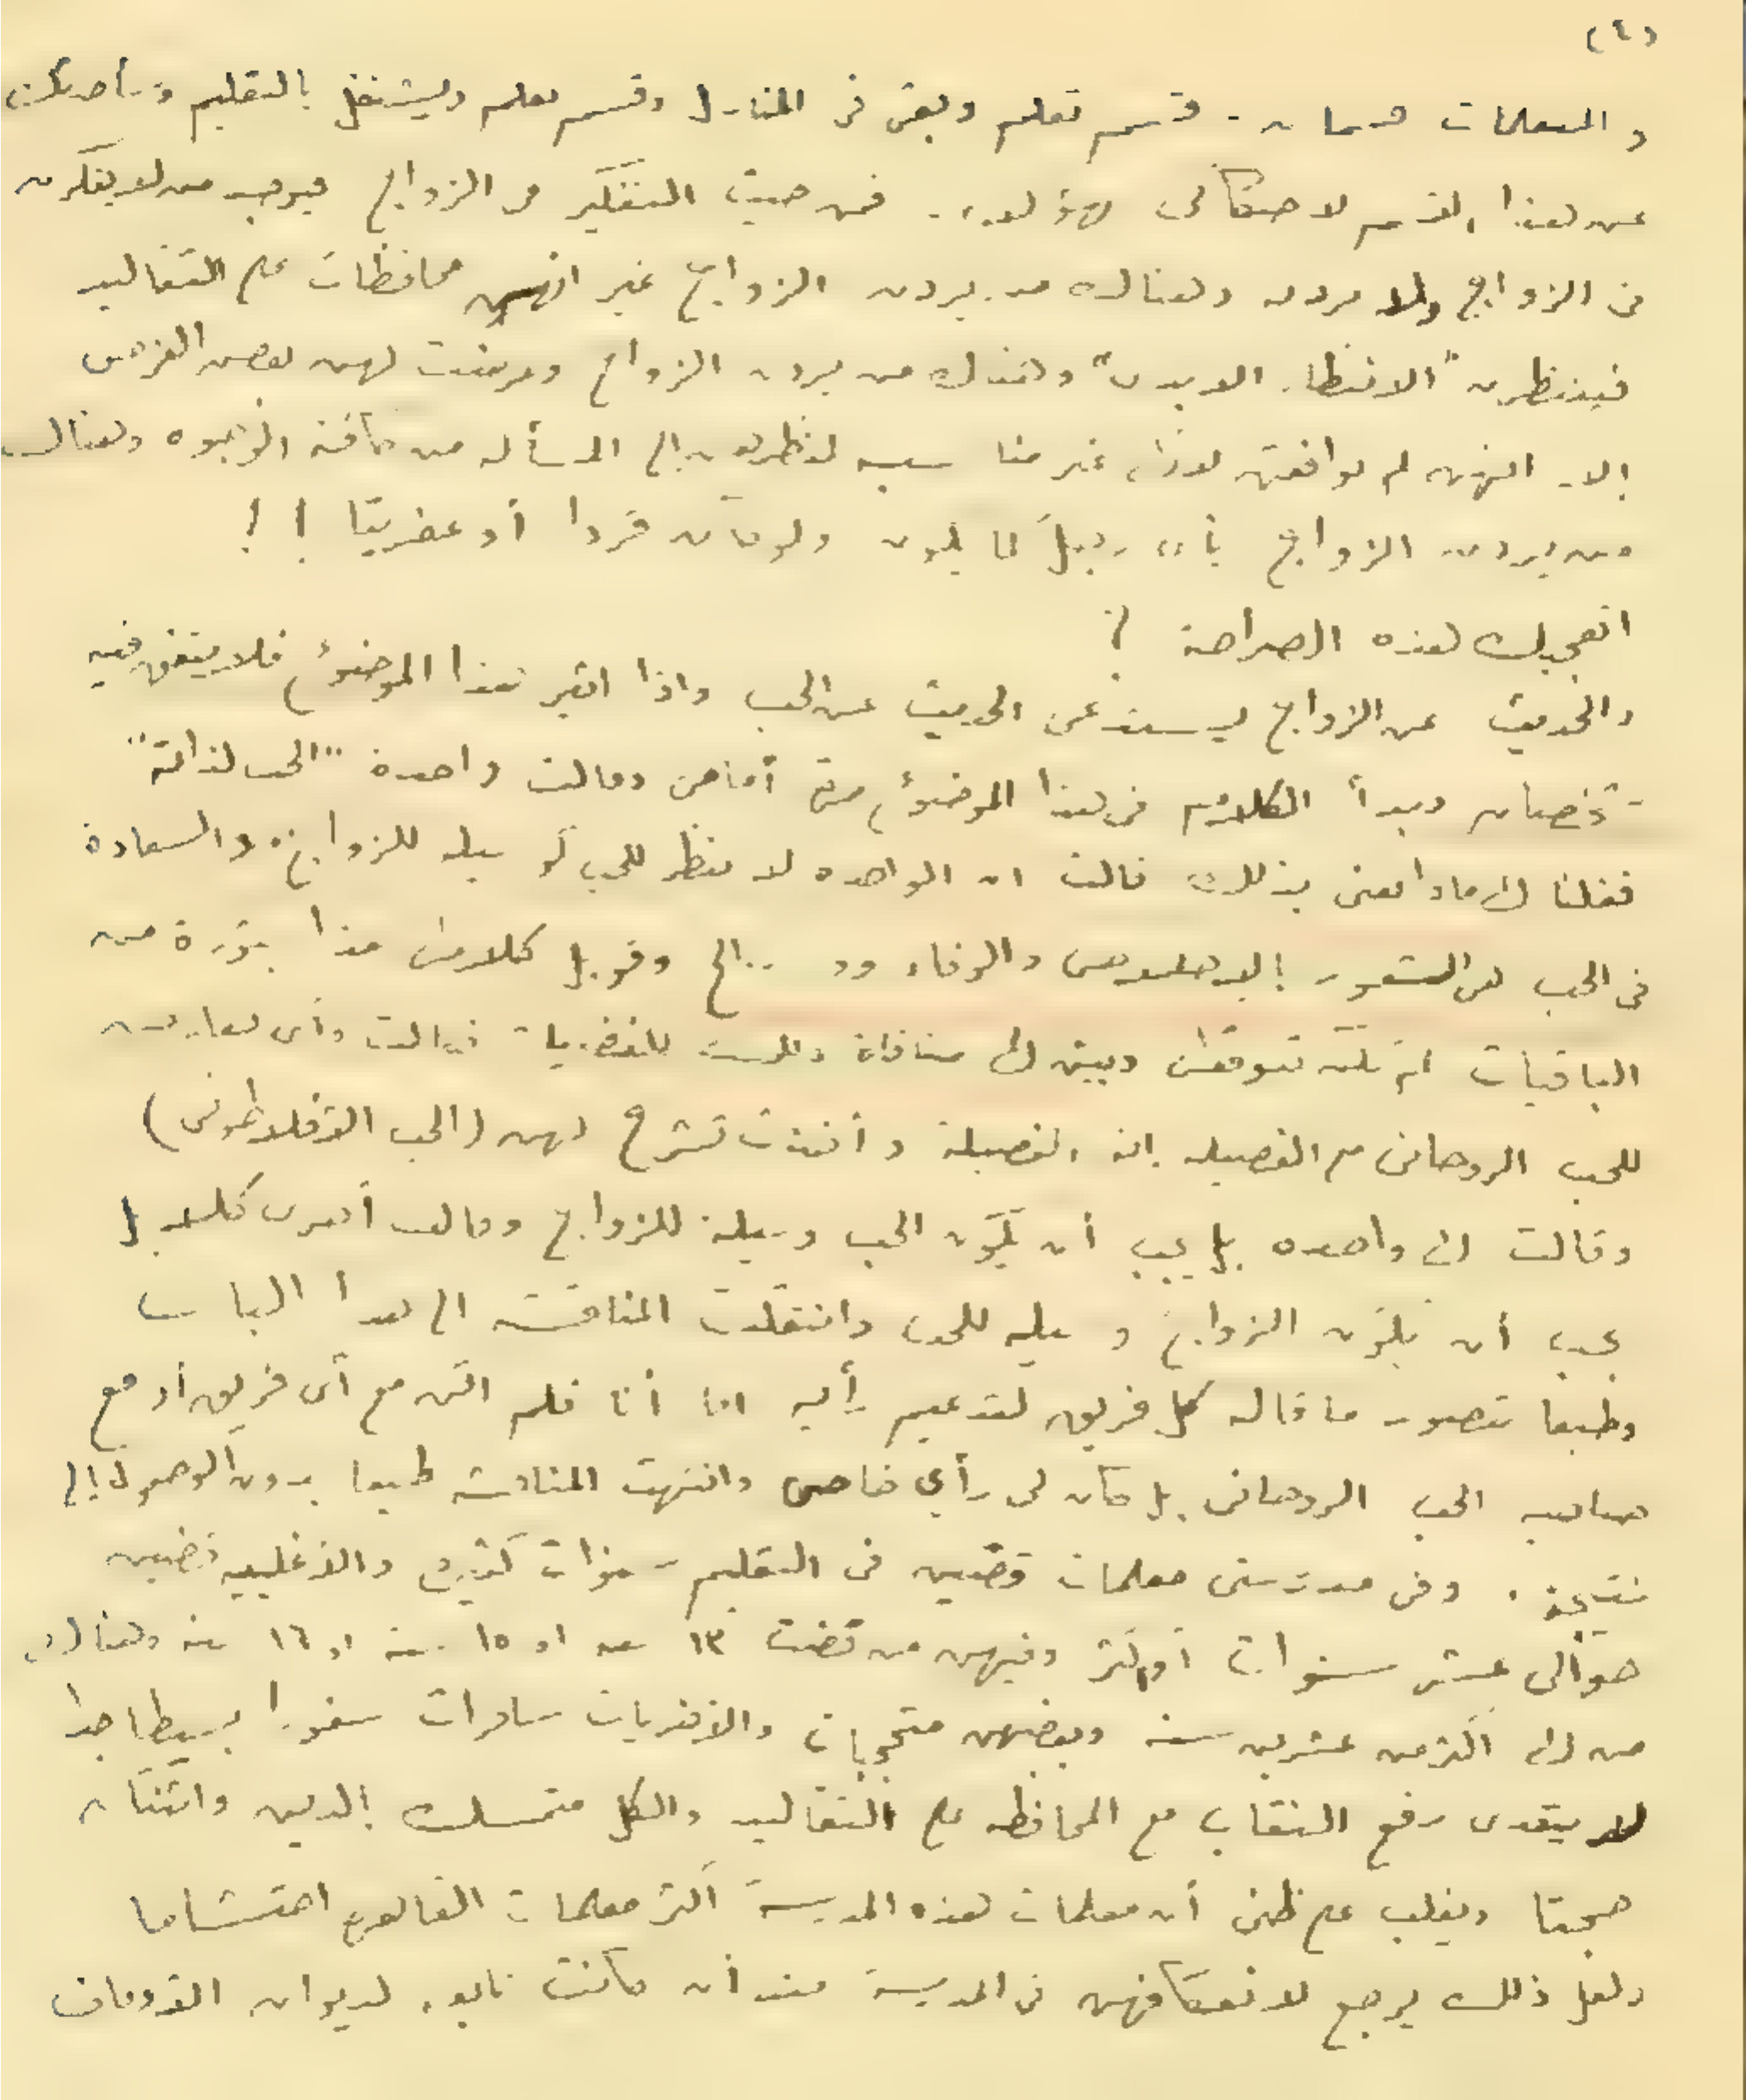 (٤)
والمتعلمات قسمان - قسم تعلم وبقى فى المنازل وقسم تعلم ويشتغل بالتعليم وسأحدثك
عن هذا القسم لاحتكاكى بهؤلاء. فمن حيث التفكير فى الزواج فيوجد من لا يفكرن
فى الزواج ولا يردنه وهناك من يردن الزواج غير انهن محافظات على التقاليد
فينتظرن "الانتظار الابدى" وهناك من يردن الزواج وعرضت لهن بعض الفرص
إلا انهن لم يوافقن لأنه غير مناسب لنظرهن إلى المسألة من كافة الوجوه وهناك
من يردن الزواج بأى رجل كما يكون ولو كان قردا أو عفريتا !!
اتعجبك هذه الصراحة ؟
والحديث عن الزواج يستدعى الحديث عن الحب واذا اثير هذا الموضوع فلا يتفق فيه
شخصان وبدأ الكلام فى هذا الموضوع مرة أمامى وقالت واحدة "الحب لذاته"
فقلنا لها ماذا تعنى بذلك قالت ان الواحده لا تنظر للحب كوسيله للزواج والسعادة
فى الحب هى الشعور بالاخلاص والوفاء و... الخ وقوبل كلامها هذا بثورة من
الباقيات لم تكن تتوقعها وبين لها منافاة ذلك للنظريات فقالت وأى تعارض
للحب الروحانى مع الفضيله إنه الفضيلة وأخذت تشرح لهن (الحب الافلاطونى)
وقالت لها واحده بل يجب أن يكون الحب وسيلة للزواج وقالت أخرى كلا بل
يجب أن يكون الزواج وسيله للحب وانتقلت المناقشة الى هذا الباب
وطبعا تتصور ما قاله كل فريق لتدعيم رأيه اما أنا فلم اكن مع أى فريق أو مع
صاحبه الحب الروحانى بل كان لى رأي خاص وانتهت المناقشة طبعا بدون الوصول إلى
نتيجة. وفى مدرستى معلمات قضين فى التعليم سنوات كثيره والاغلبيه قضين
حوالى عشر سنوات أو اكثر وفيهن من قضت ١٣ سنه او ١٥ سنه او ١٦ سنه وهناك
من لها اكثر من عشرين سنه وبعضهن متحجبات والاخريات سافرات سفورا بسيطا جدا
لا يتعدى رفع النقاب مع المحافظه على التقاليد والكل متمسك بالدين واثنتان
حجتا ويغلب على ظنى أن معلمات هذه المدرسة أكثر معلمات القاهرة احتشاما
ولعل ذلك يرجع لانعكافهن فى المدرسة منذ أن كانت تابعه لديوان الاوقاف